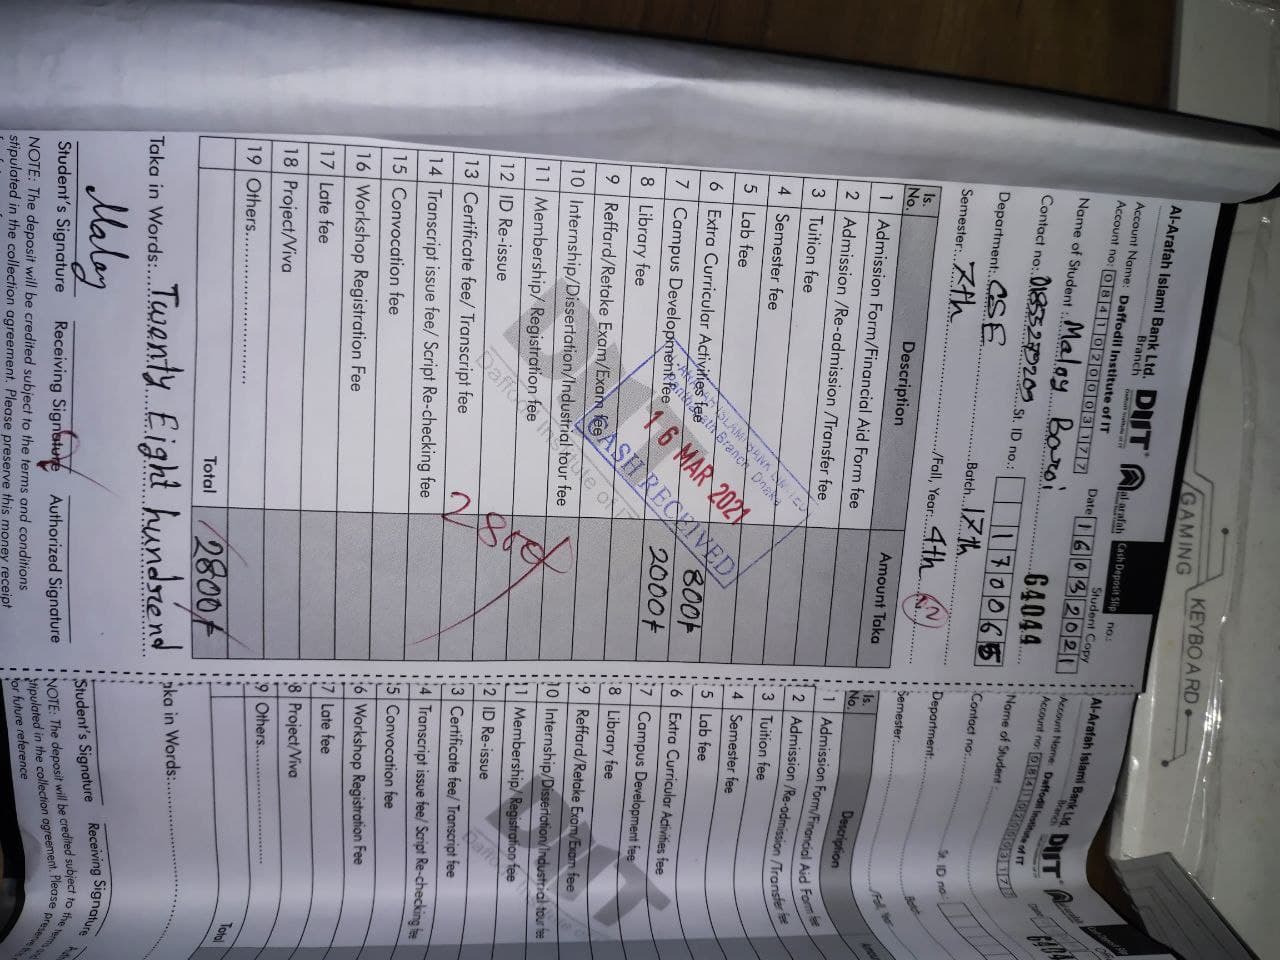 Al-Arafah Islami Bank Ltd.
Branch
DIIT
al-arafah
Cash Deposit Slip
no.:
Student Copy
Account Name: Daffodil Institute of IT
Account no: 0841020003177
Date 16032021
Name of Student: Malay Baroi
64044
Contact no: St. ID no.: 170065
Department: CSE Batch 17th
Semester: 7th /Fall, Year: 4th
Is. No. Description Amount Taka
1 Admission Form/Financial Aid Form fee
2 Admission /Re-admission /Transfer fee
3 Tuition fee
4 Semester fee
5 Lab fee
6 Extra Curricular Activities fee
7 Campus Development fee 800/-
8 Library fee 2000/-
9 Reffard/Retake Exam/Exam fee
10 Internship/Dissertation/Industrial tour fee
11 Membership/ Registration fee
12 ID Re-issue
13 Certificate fee/ Transcript fee
14 Transcript issue fee/ Script Re-checking fee
15 Convocation fee
16 Workshop Registration Fee
17 Late fee
18 Project/Viva
19 Others.....................
Total 2800/-
Taka in Words:.... Twenty Eight hundrend
Malay
Student's Signature Receiving Signature Authorized Signature
NOTE: The deposit will be credited subject to the terms and conditions
stipulated in the collection agreement. Please preserve this money receipt
16 MAR 2021
CASH RECEIVED
DIIT
Daffodil Institute of IT
Al-Arafah Islami Bank Ltd.
Branch
DIIT
Account Name: Daffodil Institute of IT
Account no:
Name of Student:
Contact no:
St. ID no.
Department:
Batch
Semester: /Fall, Year:
Is. No. Description
1 Admission Form/Financial Aid Form fee
2 Admission /Re-admission /Transfer fee
3 Tuition fee
4 Semester fee
5 Lab fee
6 Extra Curricular Activities fee
7 Campus Development fee
8 Library fee
9 Reffard/Retake Exam/Exam fee
10 Internship/Dissertation/Industrial tour fee
11 Membership/ Registration fee
12 ID Re-issue
3 Certificate fee/ Transcript fee
4 Transcript issue fee/ Script Re-checking fee
5 Convocation fee
6 Workshop Registration Fee
7 Late fee
8 Project/Viva
9 Others...............
Total
aka in Words:.....................
Student's Signature Receiving Signature
NOTE: The deposit will be credited subject to the
stipulated in the collection agreement. Please
or future reference
GAMING KEYBOARD